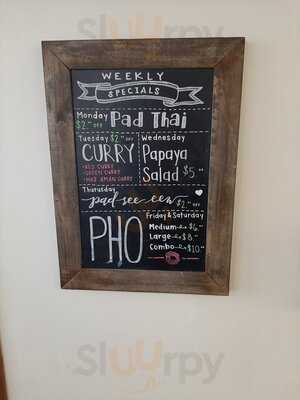 sluurpy
WEEKLY
SPECIALS
Monday
$2.00 OFF Pad Thai
Tuesday $2.00 OFF
CURRY
• RED CURRY
• GREEN CURRY
Wednesday
Papaya
Salad $5.00
Thurusday
pad see eew
$2.00 OFF
PHO
Friday & Saturday
Medium $6.00
Large $8.00
Combo $10.00
sluurpy